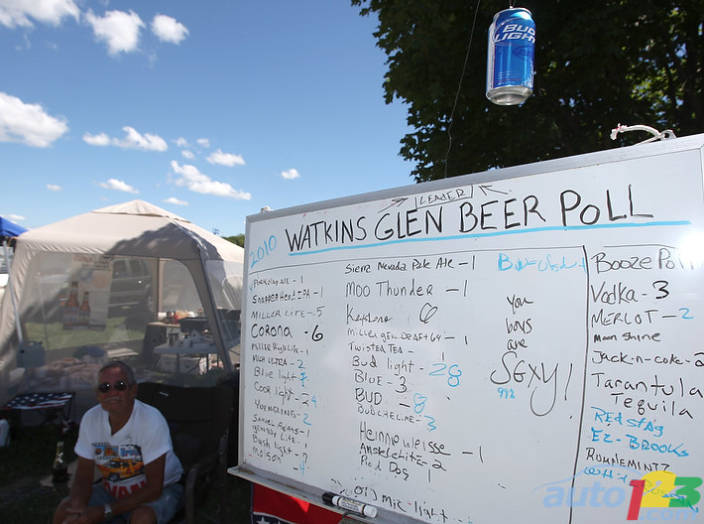 BUD
LIGHT
LEADER
2010 WATKINS GLEN BEER POLL
ALE - 1
IPA - 1
MILLER LITE - 5
CORONA - 6
MILLER HIGH LIFE - 1
MICH ULTRA - 2
BLUE light -
COOR light - 24
YUENGLING - 2
LITE - 1
BUSH light -
MOLSON
Sierra Nevada Pale Ale - 1
MOO Thunder - 1
Keystone
MILLER GEN DRAFT 64 - 1
TWISTED TEA - 1
Bud light - 28
BLUE - 3
BUD - 8
BUD CHELADE - 3
Heinneweisse - 1
Amstel Lite - 2
Red Dog - 1
light
you
boys
are
SEXY!
Booze Poll
Vodka - 3
MERLOT - 2
Moon shine
Jack-n-coke - 2
Tarantula
Tequila
REd stAg
Ez-BROOKS
RUMNEMINTZ
auto123